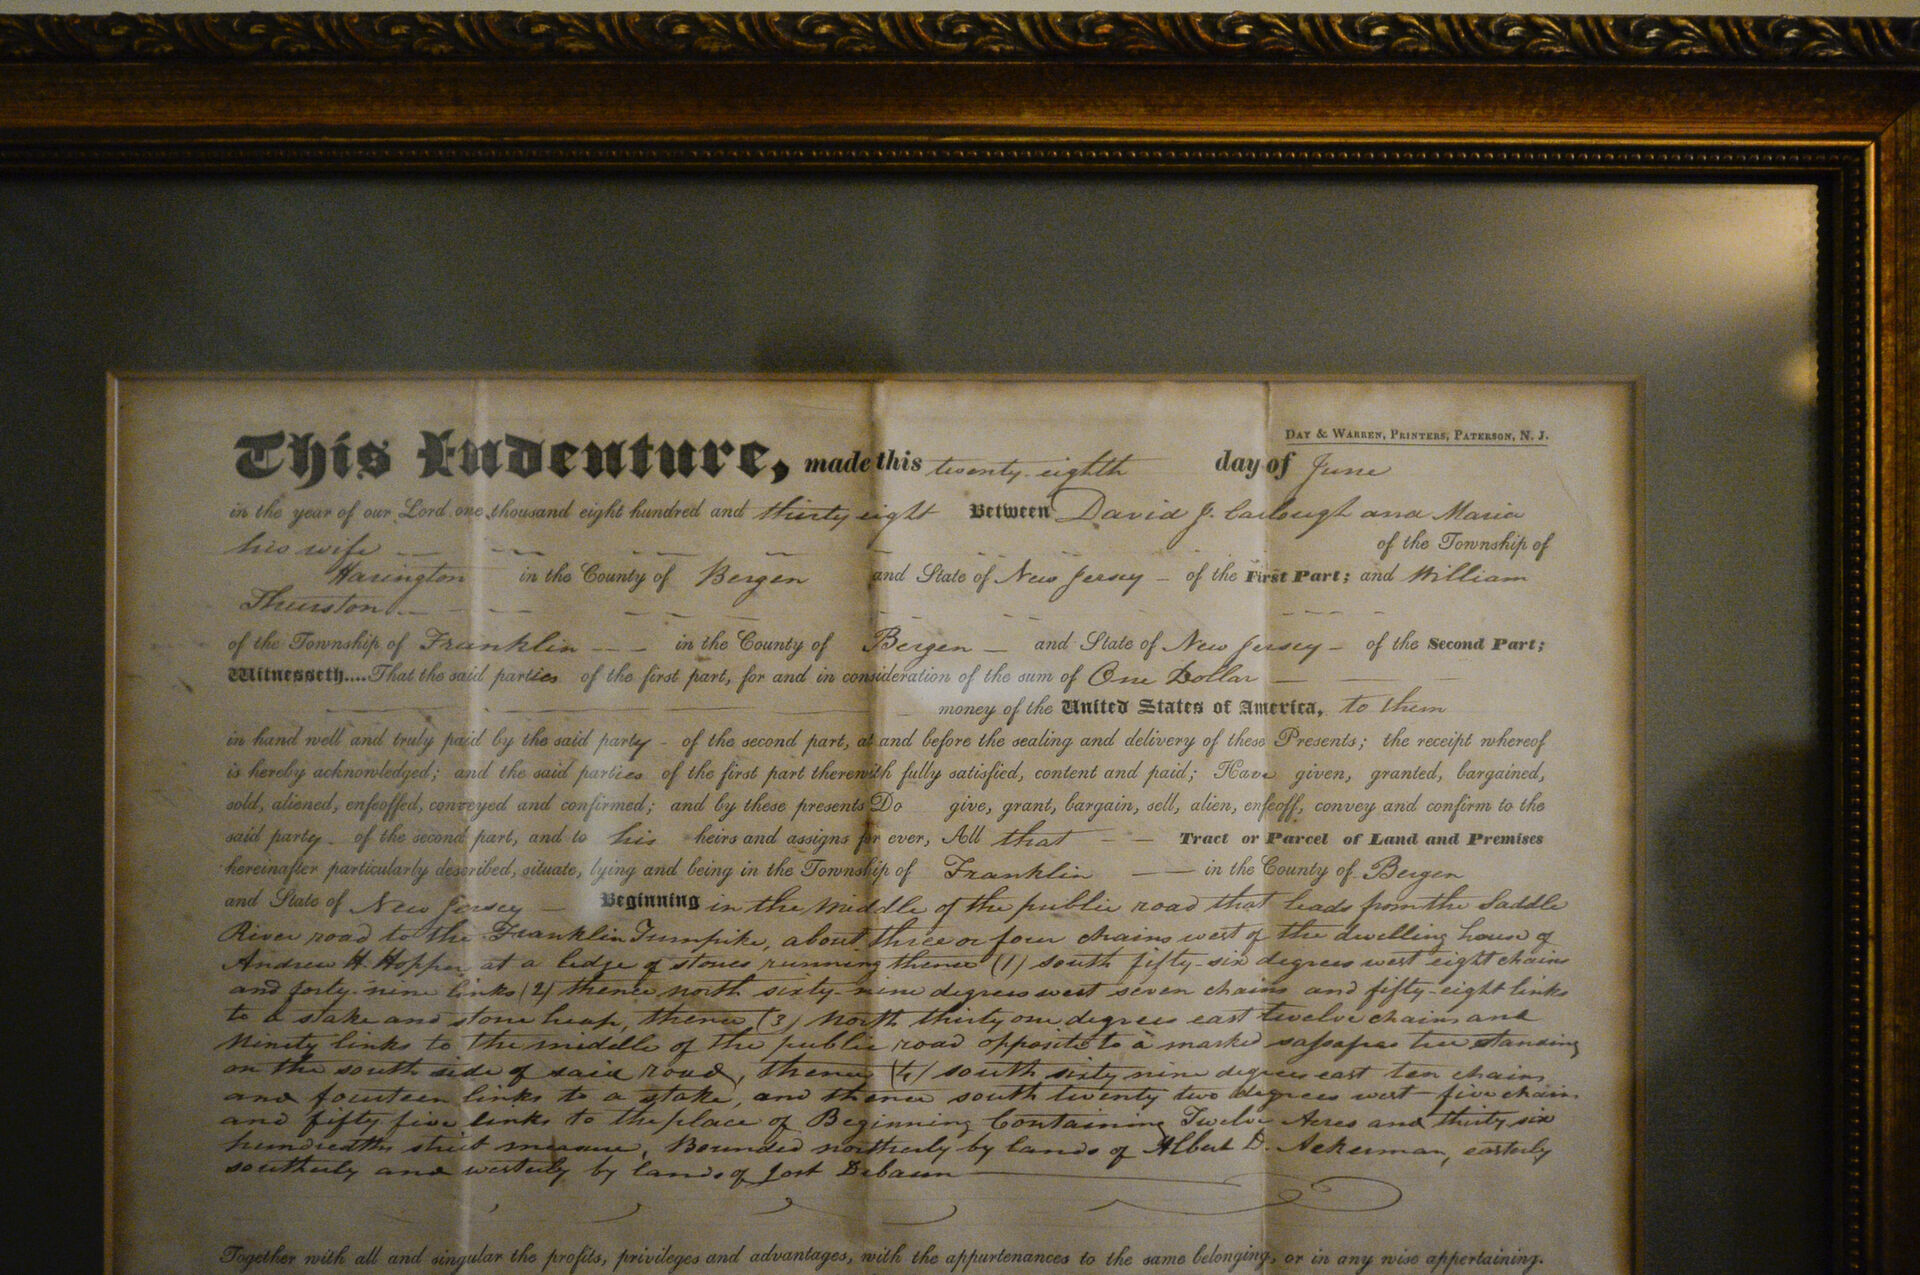 DAY & WARREN, PRINTERS, PATERSON, N. J.
This Indenture, made this twenty-eighth day of June
in the year of our Lord one thousand eight hundred and thirty eight Between David J. Carlough and Maria
his wife of the Township of
Harington in the County of Bergen and State of New Jersey - of the First Part; and William
Thurston
of the Township of Franklin --- in the County of Bergen - and State of New Jersey - of the Second Part;
Witnesseth....That the said parties of the first part, for and in consideration of the sum of One Dollar -
money of the United States of America, to them
in hand well and truly paid by the said party - of the second part, at and before the sealing and delivery of these Presents; the receipt whereof
is hereby acknowledged; and the said parties of the first part therewith fully satisfied, content and paid; Have given, granted, bargained,
sold, aliened, enfeoffed, conveyed and confirmed; and by these presents Do give, grant, bargain, sell, alien, enfeoff, convey and confirm to the
said party - of the second part, and to his heirs and assigns for ever, All that -- Tract or Parcel of Land and Premises
hereinafter particularly described, situate, lying and being in the Township of Franklin -- in the County of Bergen
and State of New Jersey - Beginning in the middle of the public road that leads from the Saddle
River road to the Franklin Turnpike, about three or four chains west of the dwelling house of
Andrew H. Hopper at a ledge of stones running thence (1) south fifty-six degrees west eight chains
and forty-nine links (2) thence north sixty-nine degrees west seven chains and fifty-eight links
to a stake and stone heap, thence (3) North thirty one degrees east twelve chains and
Ninety links to the middle of the public road opposite to a marked sassafras tree standing
on the south side of said road, thence (4) south sixty nine degrees east ten chains
and fourteen links to a stake, and thence south twenty two degrees west five chains
and fifty five links to the place of Beginning Containing Twelve Acres and thirty six
hundredths strict measure, Bounded northerly by lands of Albert D. Ackerman, easterly
southerly and westerly by lands of Jost Debaun
Together with all and singular the profits, privileges and advantages, with the appurtenances to the same belonging, or in any wise appertaining.